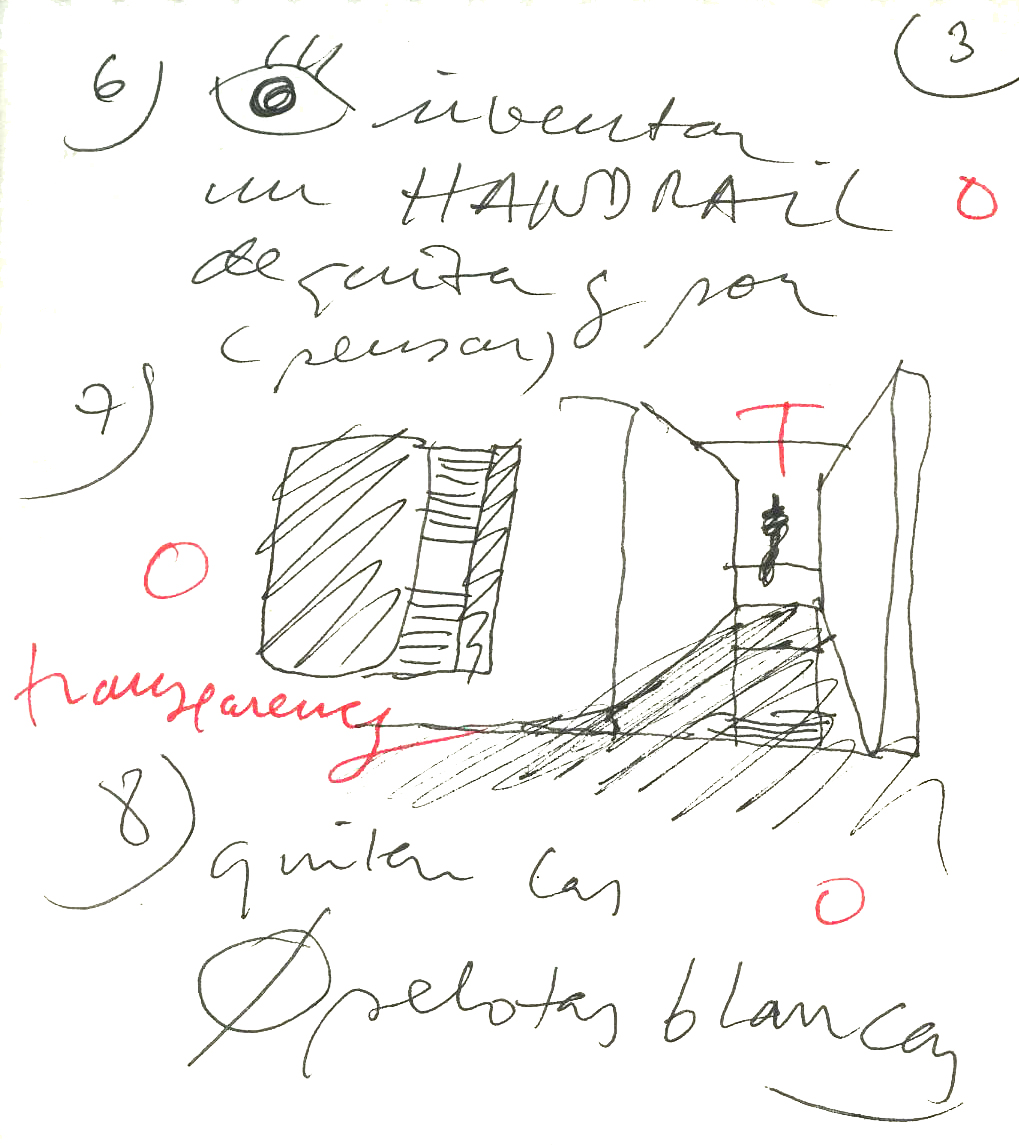 3
6) inventar
un HANDRAIL O
de quita y pon
(pensar)
7)
T
O
transparency
8)
quitar las
O
pelotas blancas